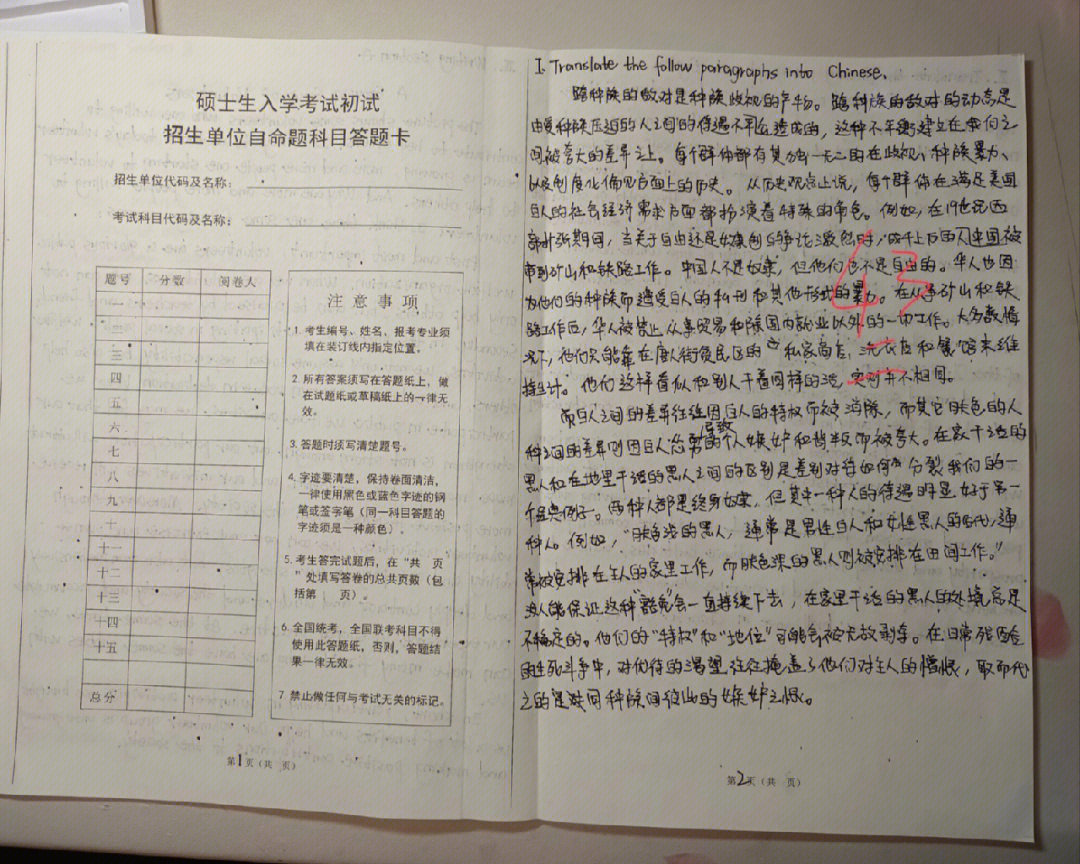 硕士生入学考试初试
招生单位自命题科目答题卡
招生单位代码及名称：
考试科目代码及名称：
题号 分数 阅卷人
一
二
三
四
五
六
七
八
九
十
十一
十二
十三
十四
十五
总分
注意事项
1. 考生编号、姓名、报考专业须
填在装订线内指定位置。
2. 所有答案须写在答题纸上，做
在试题纸或草稿纸上的一律无
效。
3. 答题时须写清楚题号。
4. 字迹要清楚，保持卷面清洁，
一律使用黑色或蓝色字迹的钢
笔或签字笔（同一科目答题的
字迹须是一种颜色）。
5. 考生答完试题后，在“共 页
”处填写答卷的总共页数（包
括第 页）。
6. 全国统考，全国联考科目不得
使用此答题纸，否则，答题结
果一律无效。
7 禁止做任何与考试无关的标记。
第1页（共 页）
I. Translate the follow paragraphs into Chinese.
跨种族的敌对是种族歧视的产物。跨种族的敌对的动态是
由受种族压迫的人之间的待遇不平等造成的，这种不平衡建立在我们之
间被夸大的差异之上。每个群体都有其独一无二的在歧视、种族暴力、
以及制度化偏见方面上的历史。从历史观点上说，每个群体在满足美国
白人的社会经济需求方面都扮演着特殊的角色。例如，在19世纪西
部扩张期间，当关于自由还是奴隶制的争论激烈时，成千上万的中国被
带到矿山和铁路工作。中国人不是奴隶，但他们也不是自由的。华人也因
为他们的种族而遭受白人的私刑和其他形式的暴力。在从事矿山和铁
路工作后，华人被禁止从事贸易和除国内就业以外的一切工作。大多数情
况下，他们只能靠在唐人街贫民区的“私家商店，洗衣店和餐”馆来维
持生计。他们这样看似和别人干着同样的活，实则并不相同。
而白人之间的差异往往因白人的特权而被消除，而其它肤色的人
种之间的差异则因白人态势导致的个人嫉妒和背叛而被夸大。在家干活的
黑人和在地里干活的黑人之间的区别是差别对待如何分裂我们的一
个经典例子。两种人都是终身奴隶，但其中一种人的待遇明显好于另一
种人。例如，“肤色浅的黑人，通常是男性白人和女性黑人的后代，通
常被安排在主人的家里工作，而肤色深的黑人则被安排在田间工作。”
没人能保证这种会一直持续下去，在家里干活的黑人的处境总是
不稳定的。他们的“特权”和“地位”可能会被无故剥夺。在日常残酷
的生死斗争中，对优待的渴望往往掩盖了他们对主人的憎恨，取而代
之的是对同种族间彼此的嫉妒之恨。
43
第2页（共 页）